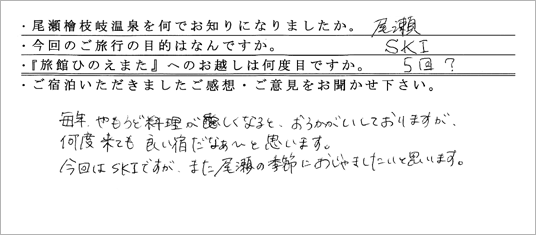 ・尾瀬檜枝岐温泉を何でお知りになりましたか。 尾瀬
・今回のご旅行の目的はなんですか。 SKI
・『旅館ひのえまた』へのお越しは何度目ですか。 5回?
・ご宿泊いただきましたご感想・ご意見をお聞かせ下さい。
毎年、やもうど料理が恋しくなると、おうかがいしておりますが、
何度来ても良い宿だなぁ〜と思います。
今回はSKIですが、また尾瀬の季節におじゃましたいと思います。